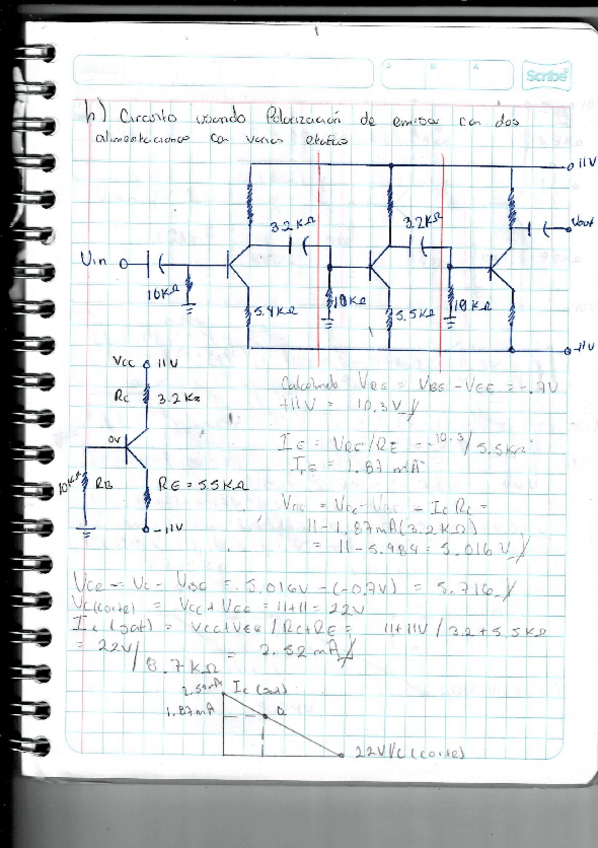 Scribe
h) Circuito usando Polarización de emisor con dos
alimentaciones con varias etapas
11V
3.2KΩ
3.2KΩ
Vout
Vin
10KΩ
5.4KΩ
10KΩ
5.5KΩ
10KΩ
-11V
Vcc 11V
Rc 3.2KΩ
0V
10KΩ RB
RE = 5.5KΩ
-11V
Calculando
= VBE - VEE = -.7V
+11V = 10.3V
IE = VRE/RE = -10.3/5.5KΩ
IE = 1.87 mA
- Ic Rc =
11 - 1.87mA(3.2KΩ)
= 11 - 5.984 = 5.016V
VCE = Vc - VBE = 5.016V - (-0.7V) = 5.716
Vc(corte) = Vcc + VEE = 11+11 = 22V
Ic(sat) = Vcc+VEE / Rc+RE = 11+11V / 3.2+5.5KΩ
= 22V/8.7KΩ = 2.52mA
Ic (sat)
1.87mA Q
22V Vc(corte)